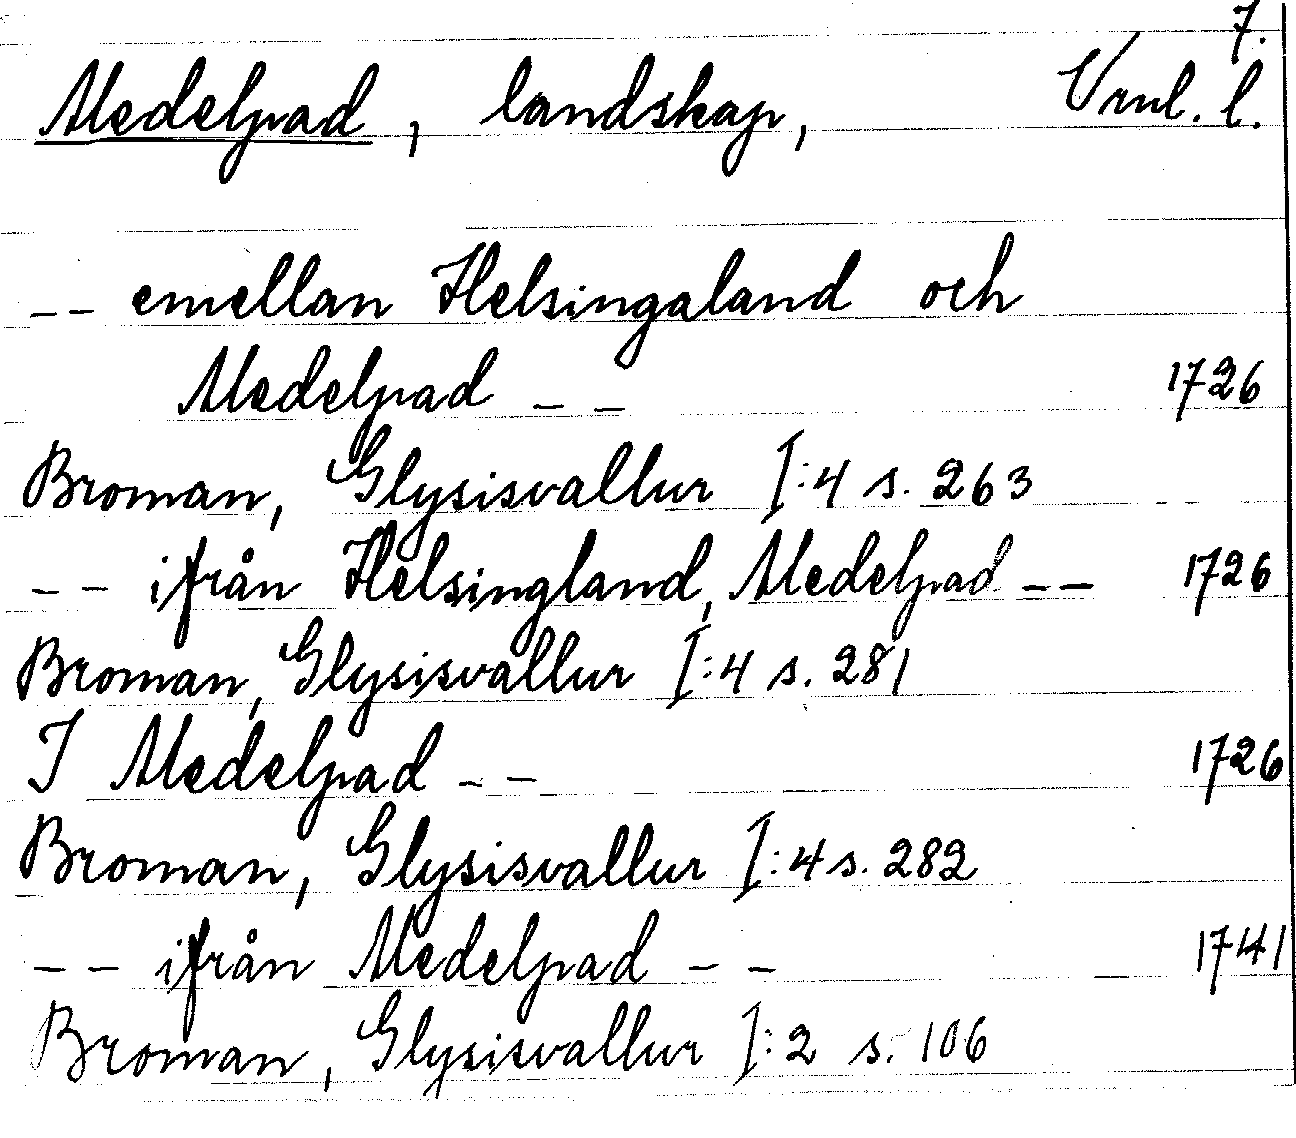 7.
Medelpad, landskap, Vrnl. l.
-- emellan Helsingaland och
Medelpad -- 1726
Broman, Glysisvallur I:4 s. 263
-- ifrån Helsingland, Medelpad -- 1726
Broman, Glysisvallur I:4 s. 281
I Medelpad -- 1726
Broman, Glysisvallur I:4 s. 282
-- ifrån Medelpad -- 1741
Broman, Glysisvallur I:2 s. 106